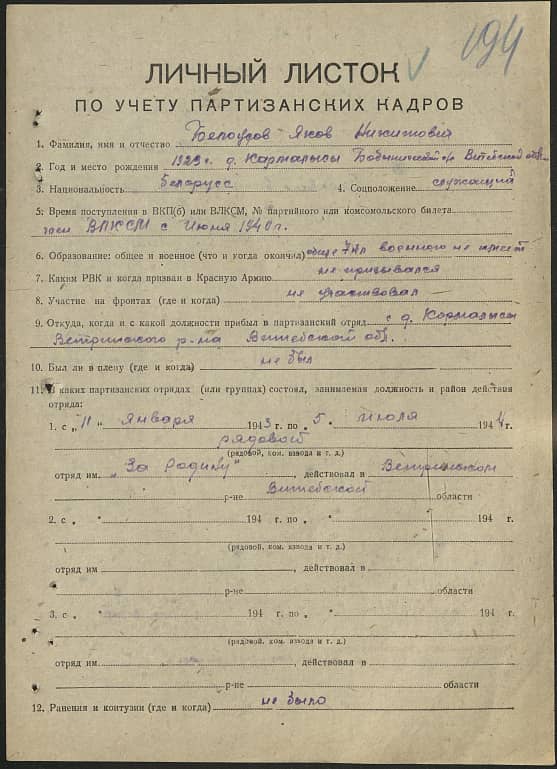 194
ЛИЧНЫЙ ЛИСТОК
ПО УЧЕТУ ПАРТИЗАНСКИХ КАДРОВ
1. Фамилия, имя и отчество Белоусов Яков Никитович
2. Год и место рождения 1923 г. д. Кармалысы р-н Витебской обл.
3. Национальность белорусс 4. Соцположение служащий
5. Время поступления в ВКП(б) или ВЛКСМ, № партийного или комсомольского билета
член ВЛКСМ с июня 1940 г.
6. Образование: общее и военное (что и когда окончил) общее 7 кл военного не имеет
7. Каким РВК и когда призван в Красную Армию не призывался
8. Участие на фронтах (где и когда) не участвовал
9. Откуда, когда и с какой должности прибыл в партизанский отряд с д. Кармалысы
Ветринского р-на Витебской обл.
10. Был ли в плену (где и когда) не был
11. В каких партизанских отрядах (или группах) состоял, занимаемая должность и район действия
отряда:
1. с „11" января 1943 г. по „5" июля 1944 г.
рядовой
(рядовой, ком. взвода и т. д.)
отряд им. „За Родину", действовал в Ветринском
р-не Витебской области
2. с „ " 194 г. по „ " 194 г.
(рядовой, ком. взвода и т. д.)
отряд им. , действовал в
р-не области
3. с „ " 194 г. по „ " 194 г.
(рядовой, ком. взвода и т. д.)
отряд им. , действовал в
р-не области
12. Ранения и контузии (где и когда) не было